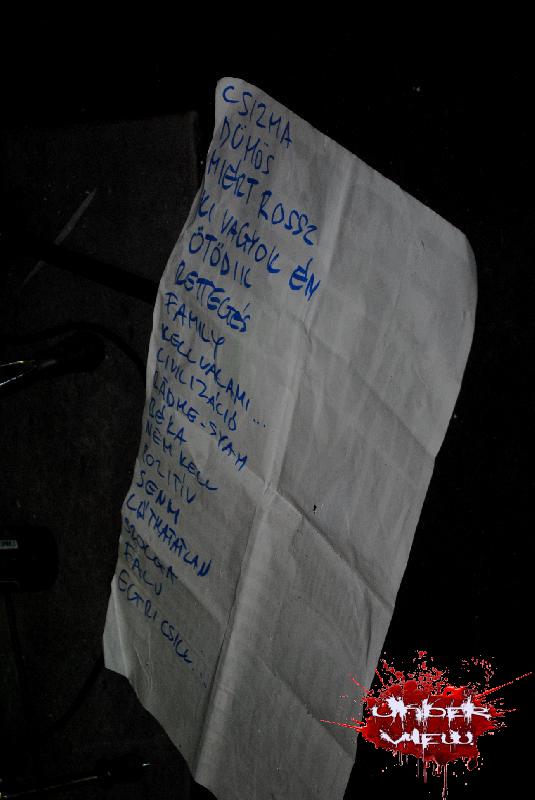 CSIZMA
DÜHÖS
MIÉRT ROSSZ
KI VAGYOK ÉN
ÖTÖDIK
RETTEGÉS
FAMILY
KELL VALAMI...
CIVILIZÁCIÓ
RÁDHE-SYAM
BÉKA
NEM KELL
POZITÍV
SENKI
LÁTHATATLAN
FALU
EGRI CSILL...
UNDER
VIEW